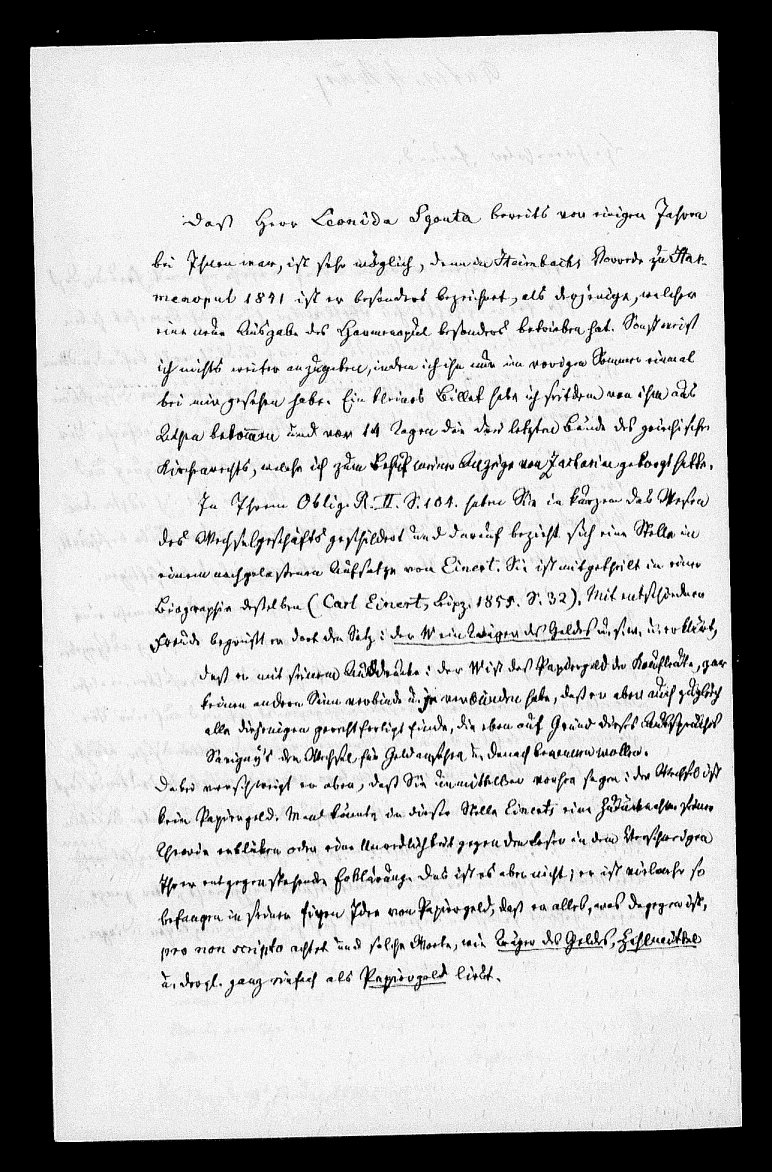 Daß Herr Leonida Sgouta bereits vor einigen Jahren
bei Ihnen war, ist sehr möglich, denn in Heimbachs Vorrede zu Har-
menopul 1851 ist er besonders bezeichnet, als derjenige, welcher
eine neue Ausgabe des Harmenopul besonders betrieben hat. Sonst weiß
ich nichts weiter anzugeben, indem ich ihn nur im vorigen Sommer einmal
bei mir gesehen habe. Ein kleines Billet habe ich seitdem von ihm aus
Athen bekommen und vor 14 Tagen die drei letzten Bände des griechischen
Kirchenrechts, welche ich zum Behuf meiner Anzeige von Zachariae geborgt hatte.
In Ihrem Oblig. R. II. S. 104. haben Sie in kurzem das Wesen
des Wechselgeschäfts geschildert und darauf bezieht sich eine Stelle in
einem nachgelassenen Aufsatze von Einert. Sie ist mitgetheilt in einer
Biographie desselben (Carl Einert, Leipz. 1855. S. 32). Mit entschiedener
Freude begrüßt er dort den Satz: der W. ein Träger des Geldes u. s. w. u. erklärt,
daß er mit seinem Ausdrucke: der W. ist das Papiergeld der Kaufleute, gar
keinen andern Sinn verbinde u. je verbunden habe, daß er aber auch zugleich
alle diejenigen gerechtfertigt finde, die eben auf Grund dieses Ausspruches
Savigny's den Wechsel für Geld ansehen u. danach benennen wollen.
Dabei verschweigt er aber, daß Sie unmittelbar vorher sagen: der Wechsel ist
kein Papiergeld. Man könnte in dieser Stelle Einerts eine Zurücknahme seiner
Theorie erblicken oder eine Unredlichkeit gegen den Leser in dem Verschweigen
Ihrer entgegenstehenden Erklärung. Das ist es aber nicht; er ist vielmehr so
befangen in seiner fixen Idee von Papiergeld, daß er alles, was dagegen ist,
pro non scripto achtet und solche Worte, wie Träger des Geldes, Zahlmittel
u. dergl. ganz einfach als Papiergeld liest.